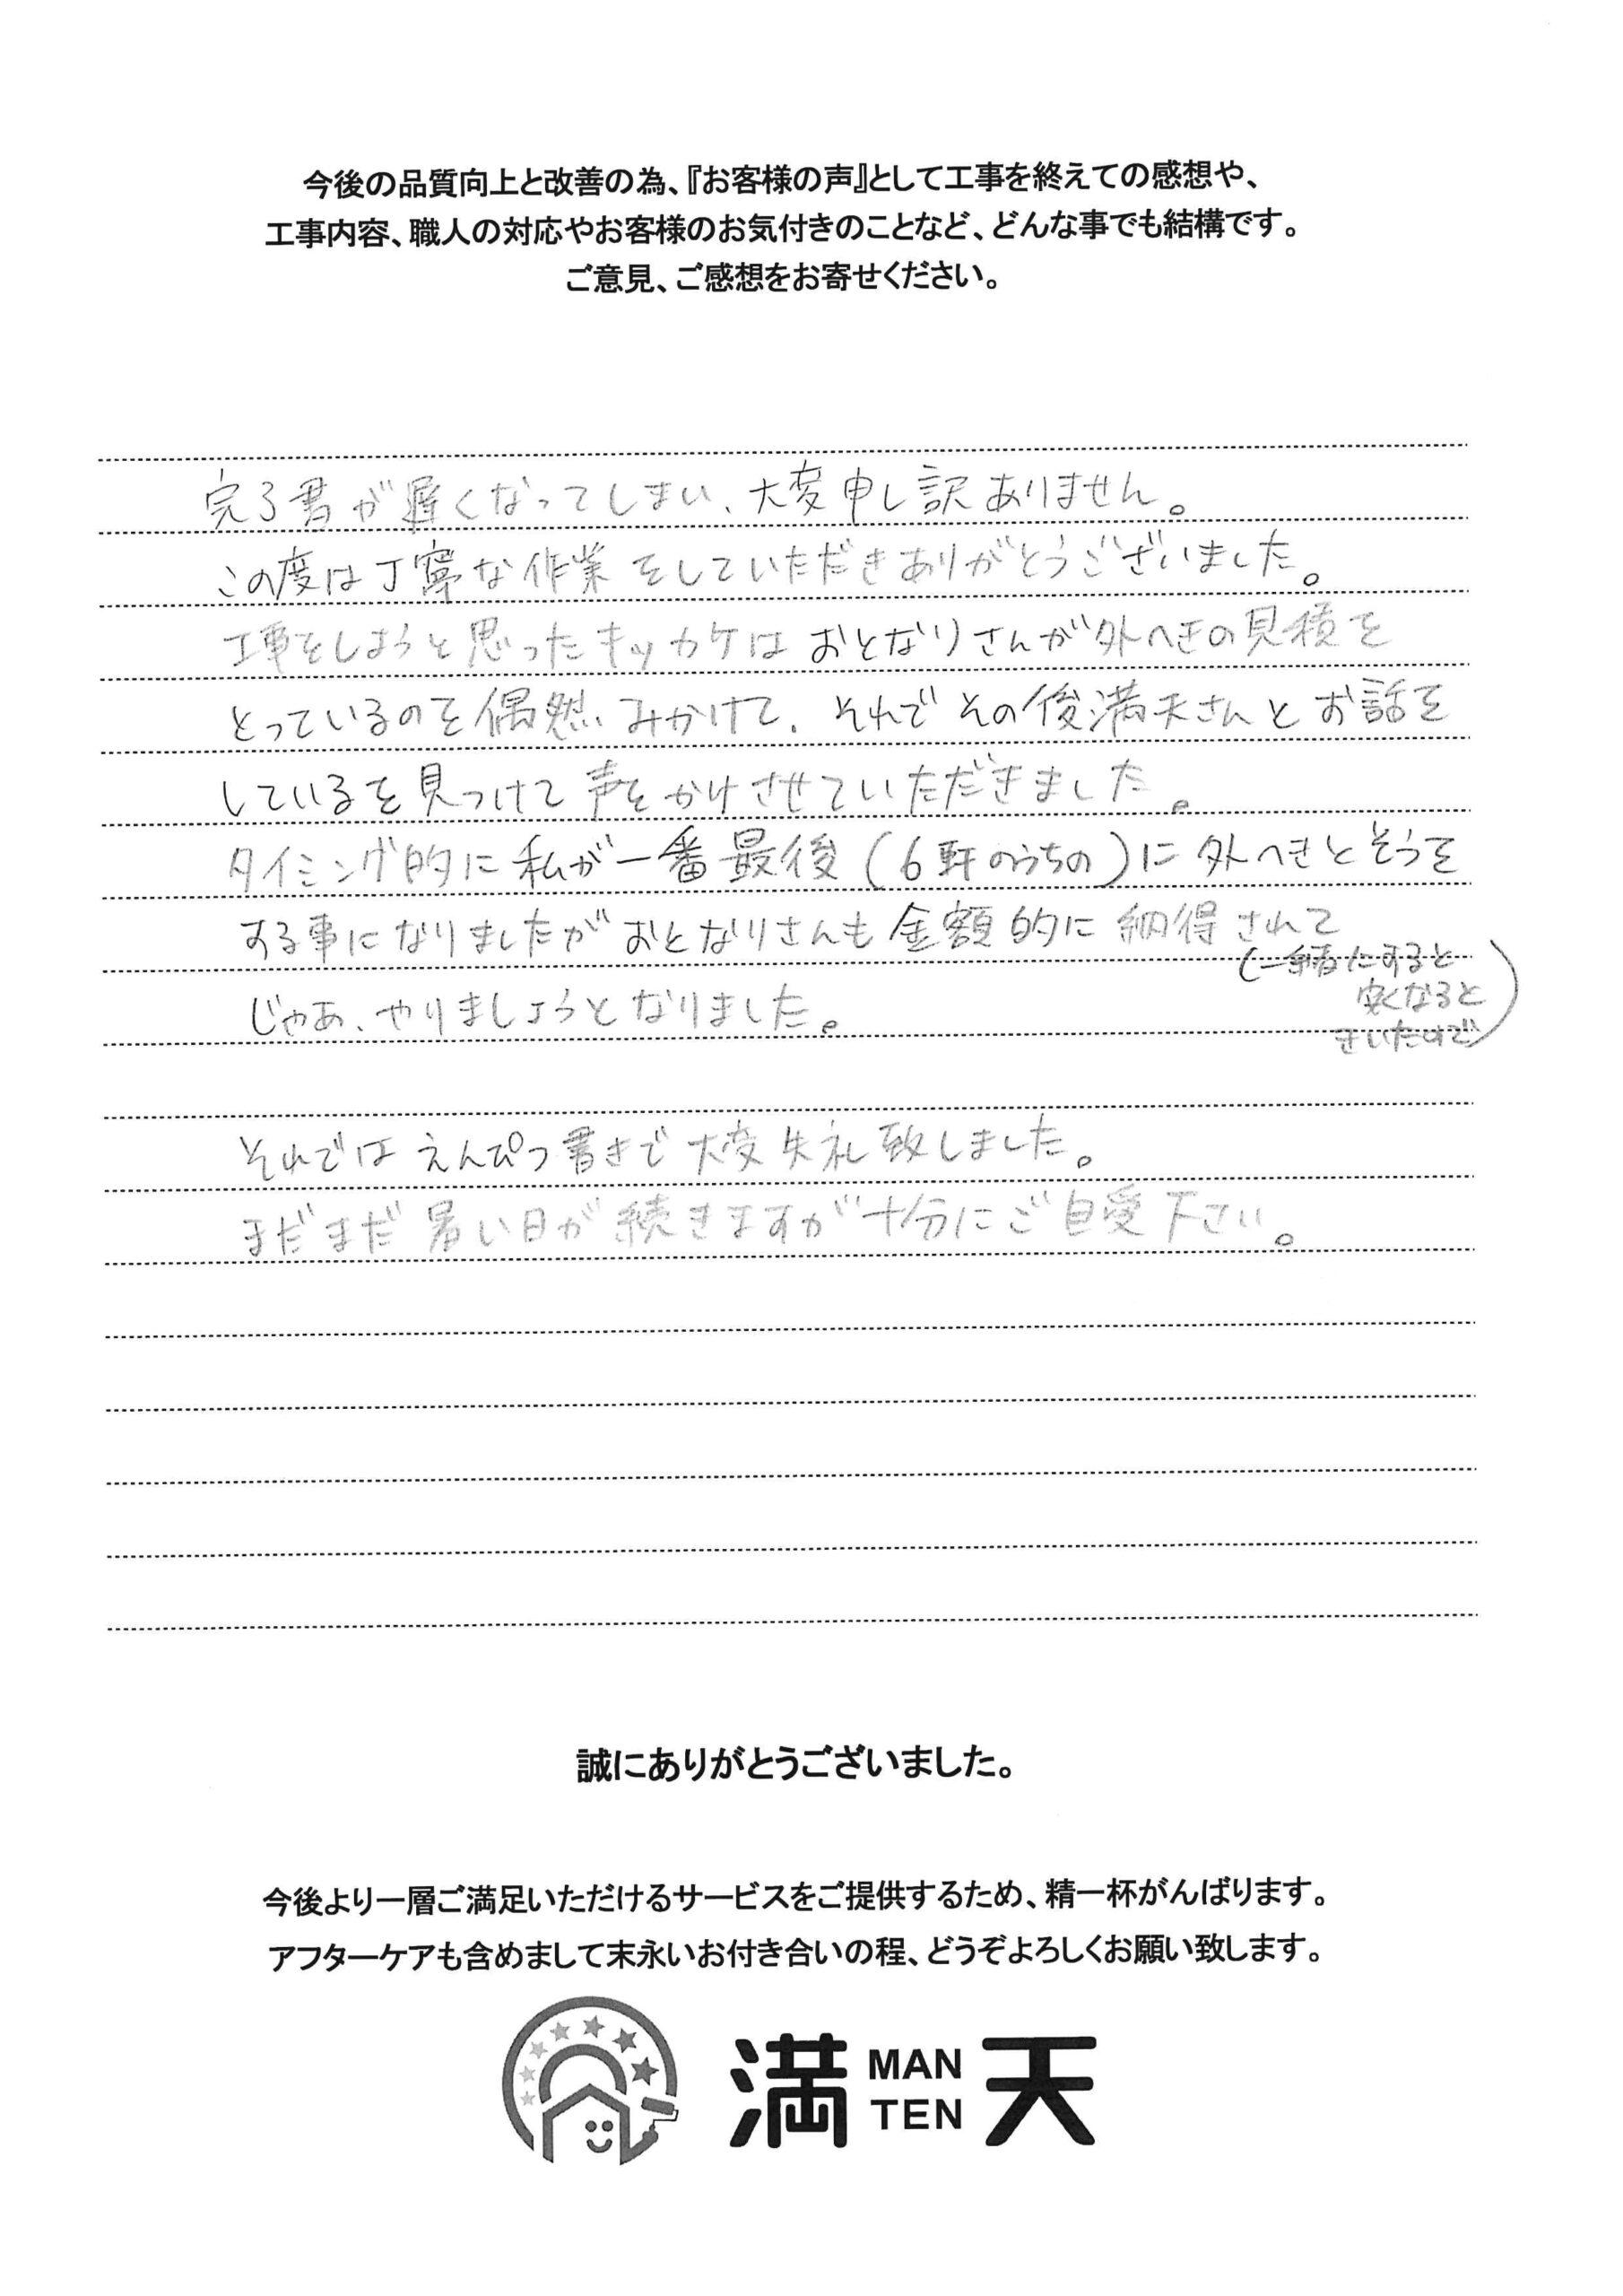 今後の品質向上と改善の為、『お客様の声』として工事を終えての感想や、
工事内容、職人の対応やお客様のお気付きのことなど、どんな事でも結構です。
ご意見、ご感想をお寄せください。
完了書が遅くなってしまい、大変申し訳ありません。
この度は丁寧な作業をしていただきありがとうございました。
工事をしようと思ったキッカケはおとなりさんが外へきの見積を
とっているのを偶然みかけて、それでその後満天さんとお話を
しているを見つけて声をかけさせていただきました。
タイミング的に私が一番最後(6軒のうちの)に外へきとそうを
する事になりましたがおとなりさんも金額的に納得されて
(一緒にすると
安くなると
きいたので)
じゃあ、やりましょうとなりました。
それではえんぴつ書きで大変失礼致しました。
まだまだ暑い日が続きますが十分にご自愛下さい。
誠にありがとうございました。
今後より一層ご満足いただけるサービスをご提供するため、精一杯がんばります。
アフターケアも含めまして末永いお付き合いの程、どうぞよろしくお願い致します。
満 MAN TEN 天